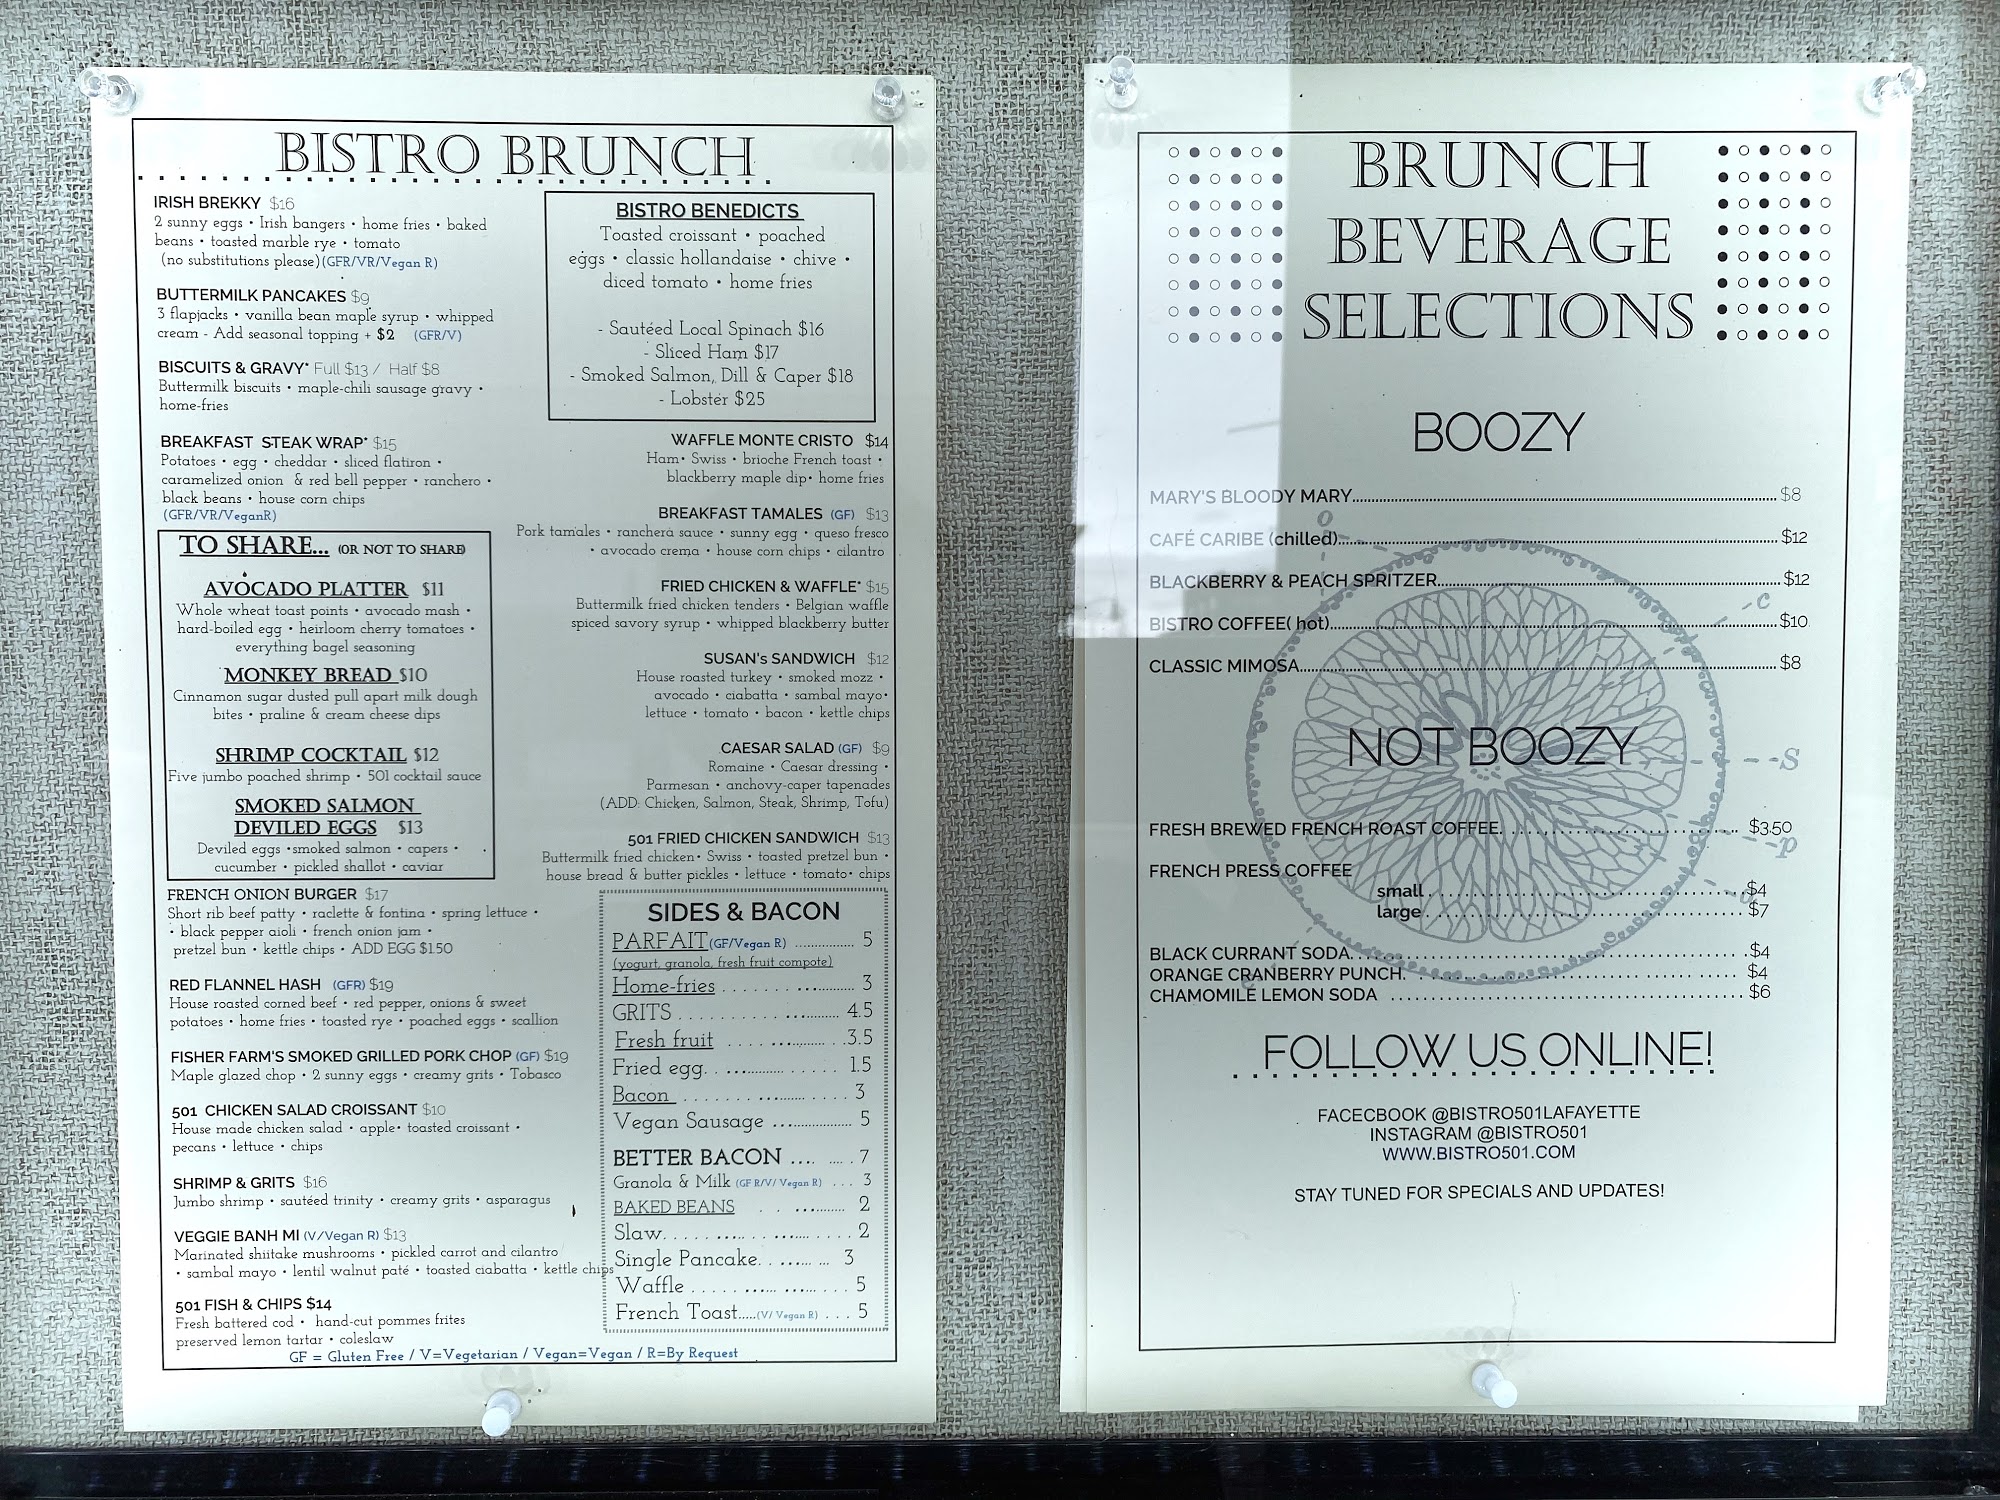 BISTRO BRUNCH
IRISH BREKKY $16
2 sunny eggs • Irish bangers • home fries • baked
beans • toasted marble rye • tomato
(no substitutions please)(GFR/VR/Vegan R)
BUTTERMILK PANCAKES $9
3 flapjacks • vanilla bean maple syrup • whipped
cream - Add seasonal topping + $2 (GFR/V)
BISCUITS & GRAVY* Full $13 / Half $8
Buttermilk biscuits • maple-chili sausage gravy •
home-fries
BREAKFAST STEAK WRAP* $15
Potatoes • egg • cheddar • sliced flatiron •
caramelized onion & red bell pepper • ranchero •
black beans • house corn chips
(GFR/VR/VeganR)
TO SHARE... (OR NOT TO SHARE)
AVOCADO PLATTER $11
Whole wheat toast points • avocado mash •
hard-boiled egg • heirloom cherry tomatoes •
everything bagel seasoning
MONKEY BREAD $10
Cinnamon sugar dusted pull apart milk dough
bites • praline & cream cheese dips
SHRIMP COCKTAIL $12
Five jumbo poached shrimp • 501 cocktail sauce
SMOKED SALMON
DEVILED EGGS $13
Deviled eggs •smoked salmon • capers •
cucumber • pickled shallot • caviar
FRENCH ONION BURGER $17
Short rib beef patty • raclette & fontina • spring lettuce •
• black pepper aioli • french onion jam •
pretzel bun • kettle chips • ADD EGG $1.50
RED FLANNEL HASH (GFR) $19
House roasted corned beef • red pepper, onions & sweet
potatoes • home fries • toasted rye • poached eggs • scallion
FISHER FARM'S SMOKED GRILLED PORK CHOP (GF) $19
Maple glazed chop • 2 sunny eggs • creamy grits • Tobasco
501 CHICKEN SALAD CROISSANT $10
House made chicken salad • apple• toasted croissant •
pecans • lettuce • chips
SHRIMP & GRITS $16
Jumbo shrimp • sautéed trinity • creamy grits • asparagus
VEGGIE BANH MI (V/Vegan R) $13
Marinated shiitake mushrooms • pickled carrot and cilantro
• sambal mayo • lentil walnut paté • toasted ciabatta • kettle chips
501 FISH & CHIPS $14
Fresh battered cod • hand-cut pommes frites
preserved lemon tartar • coleslaw
BISTRO BENEDICTS
Toasted croissant • poached
eggs • classic hollandaise • chive •
diced tomato • home fries
- Sautéed Local Spinach $16
- Sliced Ham $17
- Smoked Salmon, Dill & Caper $18
- Lobster $25
WAFFLE MONTE CRISTO $14
Ham• Swiss • brioche French toast •
blackberry maple dip• home fries
BREAKFAST TAMALES (GF) $13
Pork tamales • ranchera sauce • sunny egg • queso fresco
• avocado crema • house corn chips • cilantro
FRIED CHICKEN & WAFFLE* $15
Buttermilk fried chicken tenders • Belgian waffle
spiced savory syrup • whipped blackberry butter
SUSAN's SANDWICH $12
House roasted turkey • smoked mozz •
avocado • ciabatta • sambal mayo•
lettuce • tomato • bacon • kettle chips
CAESAR SALAD (GF) $9
Romaine • Caesar dressing •
Parmesan • anchovy-caper tapenades
(ADD: Chicken, Salmon, Steak, Shrimp, Tofu)
501 FRIED CHICKEN SANDWICH $13
Buttermilk fried chicken• Swiss • toasted pretzel bun •
house bread & butter pickles • lettuce • tomato• chips
SIDES & BACON
PARFAIT(GF/Vegan R) ............... 5
(yogurt, granola, fresh fruit compote)
Home-fries ............... 3
GRITS ............... 4.5
Fresh fruit ............... 3.5
Fried egg............... 1.5
Bacon ............... 3
Vegan Sausage ............... 5
BETTER BACON .... .... . 7
Granola & Milk (GF R/V/ Vegan R) ... 3
BAKED BEANS ............... 2
Slaw............... 2
Single Pancake............... 3
Waffle ............... 5
French Toast.....(V/ Vegan R) ... 5
GF = Gluten Free / V=Vegetarian / Vegan=Vegan / R=By Request
BRUNCH
BEVERAGE
SELECTIONS
BOOZY
MARY'S BLOODY MARY............... $8
CAFÉ CARIBE (chilled)............... $12
BLACKBERRY & PEACH SPRITZER............... $12
BISTRO COFFEE( hot)............... $10
CLASSIC MIMOSA............... $8
NOT BOOZY
FRESH BREWED FRENCH ROAST COFFEE............... $3.50
FRENCH PRESS COFFEE
small ............... $4
large ............... $7
BLACK CURRANT SODA............... $4
ORANGE CRANBERRY PUNCH............... $4
CHAMOMILE LEMON SODA ............... $6
o
c
s
p
FOLLOW US ONLINE!
FACECBOOK @BISTRO501LAFAYETTE
INSTAGRAM @BISTRO501
WWW.BISTRO501.COM
STAY TUNED FOR SPECIALS AND UPDATES!